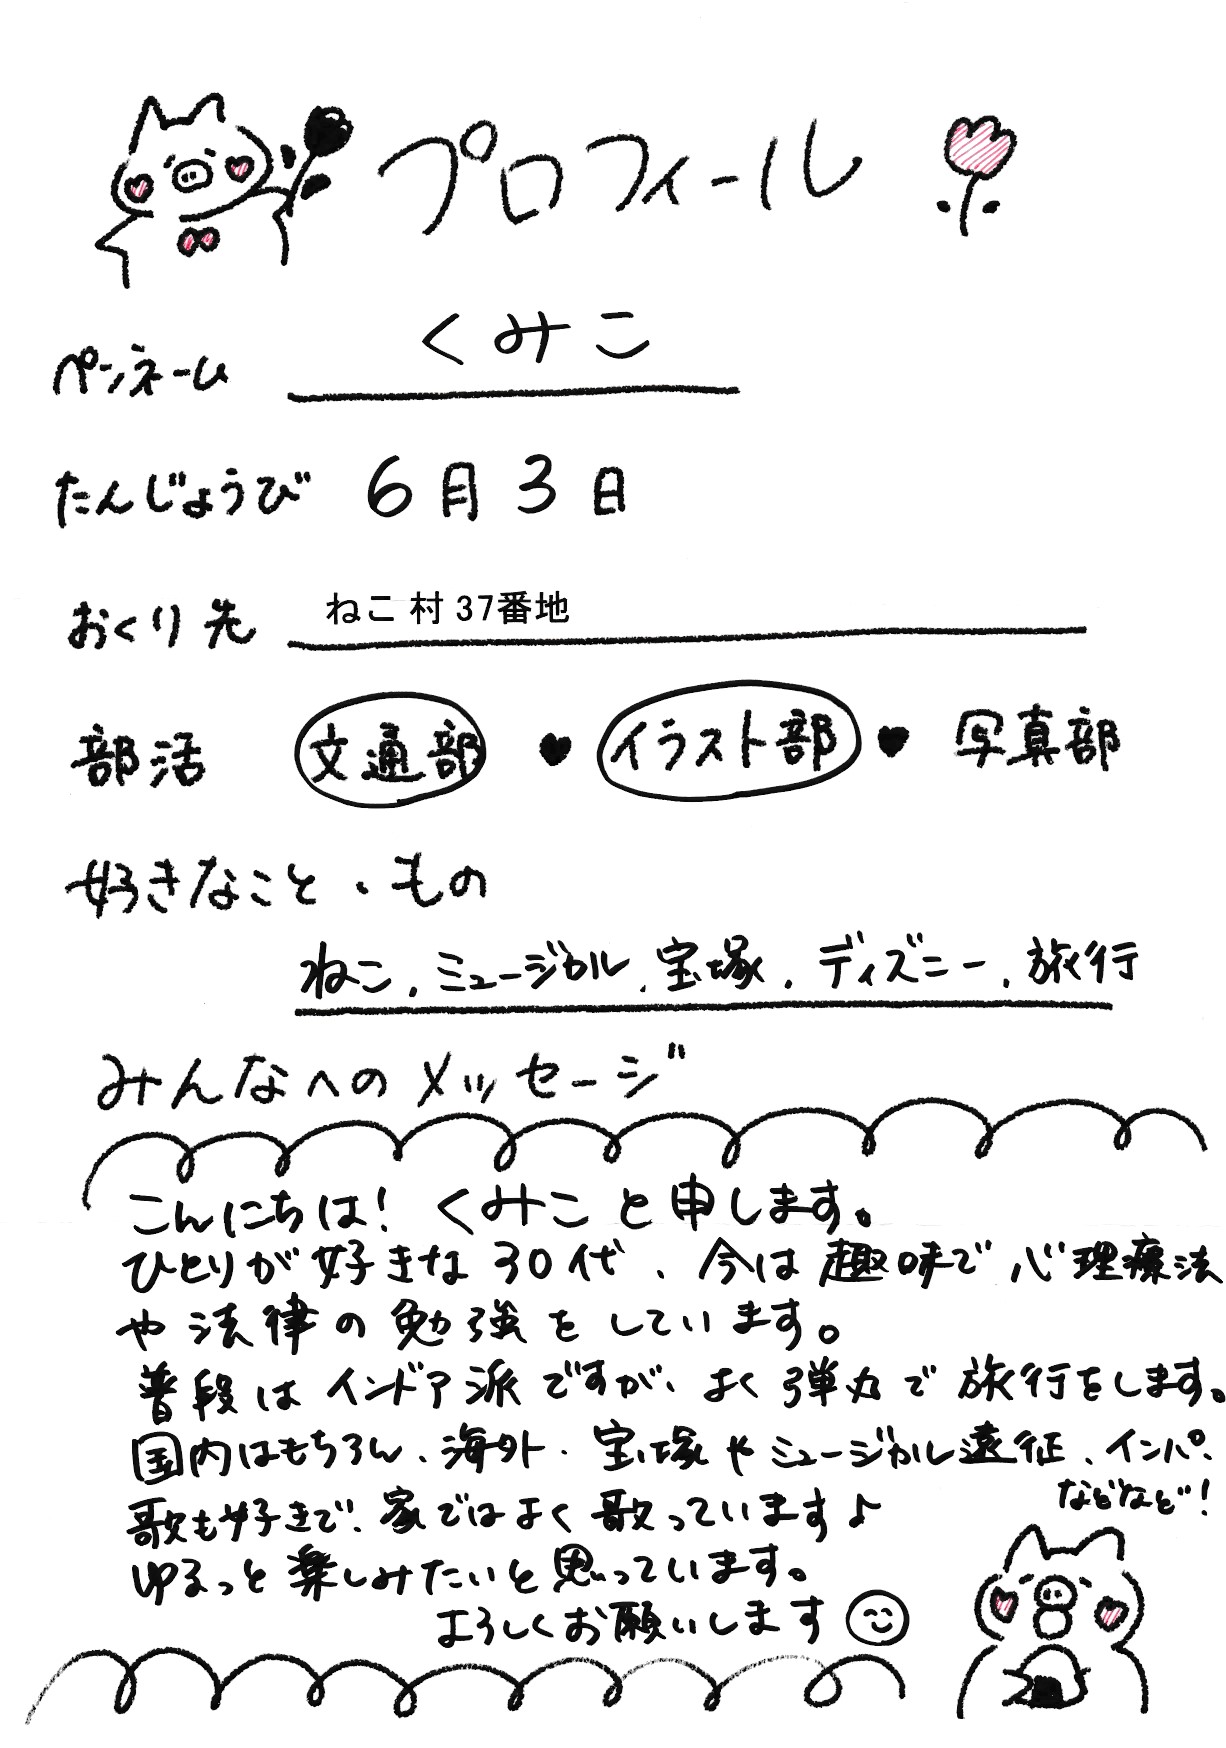 プロフィール
ペンネーム くみこ
たんじょうび 6月3日
おくり先 ねこ村37番地
部活 文通部 ♥ イラスト部 ♥ 写真部
好きなこと・もの
ねこ、ミュージカル、宝塚、ディズニー、旅行
みんなへのメッセージ
こんにちは! くみこと申します。
ひとりが好きな30代、今は趣味で心理療法
や法律の勉強をしています。
普段はインドア派ですが、よく弾丸で旅行をします。
国内はもちろん、海外、宝塚やミュージカル遠征、インパ、
などなど!
歌も好きで、家ではよく歌っています♪
ゆるっと楽しみたいと思っています。
よろしくお願いします